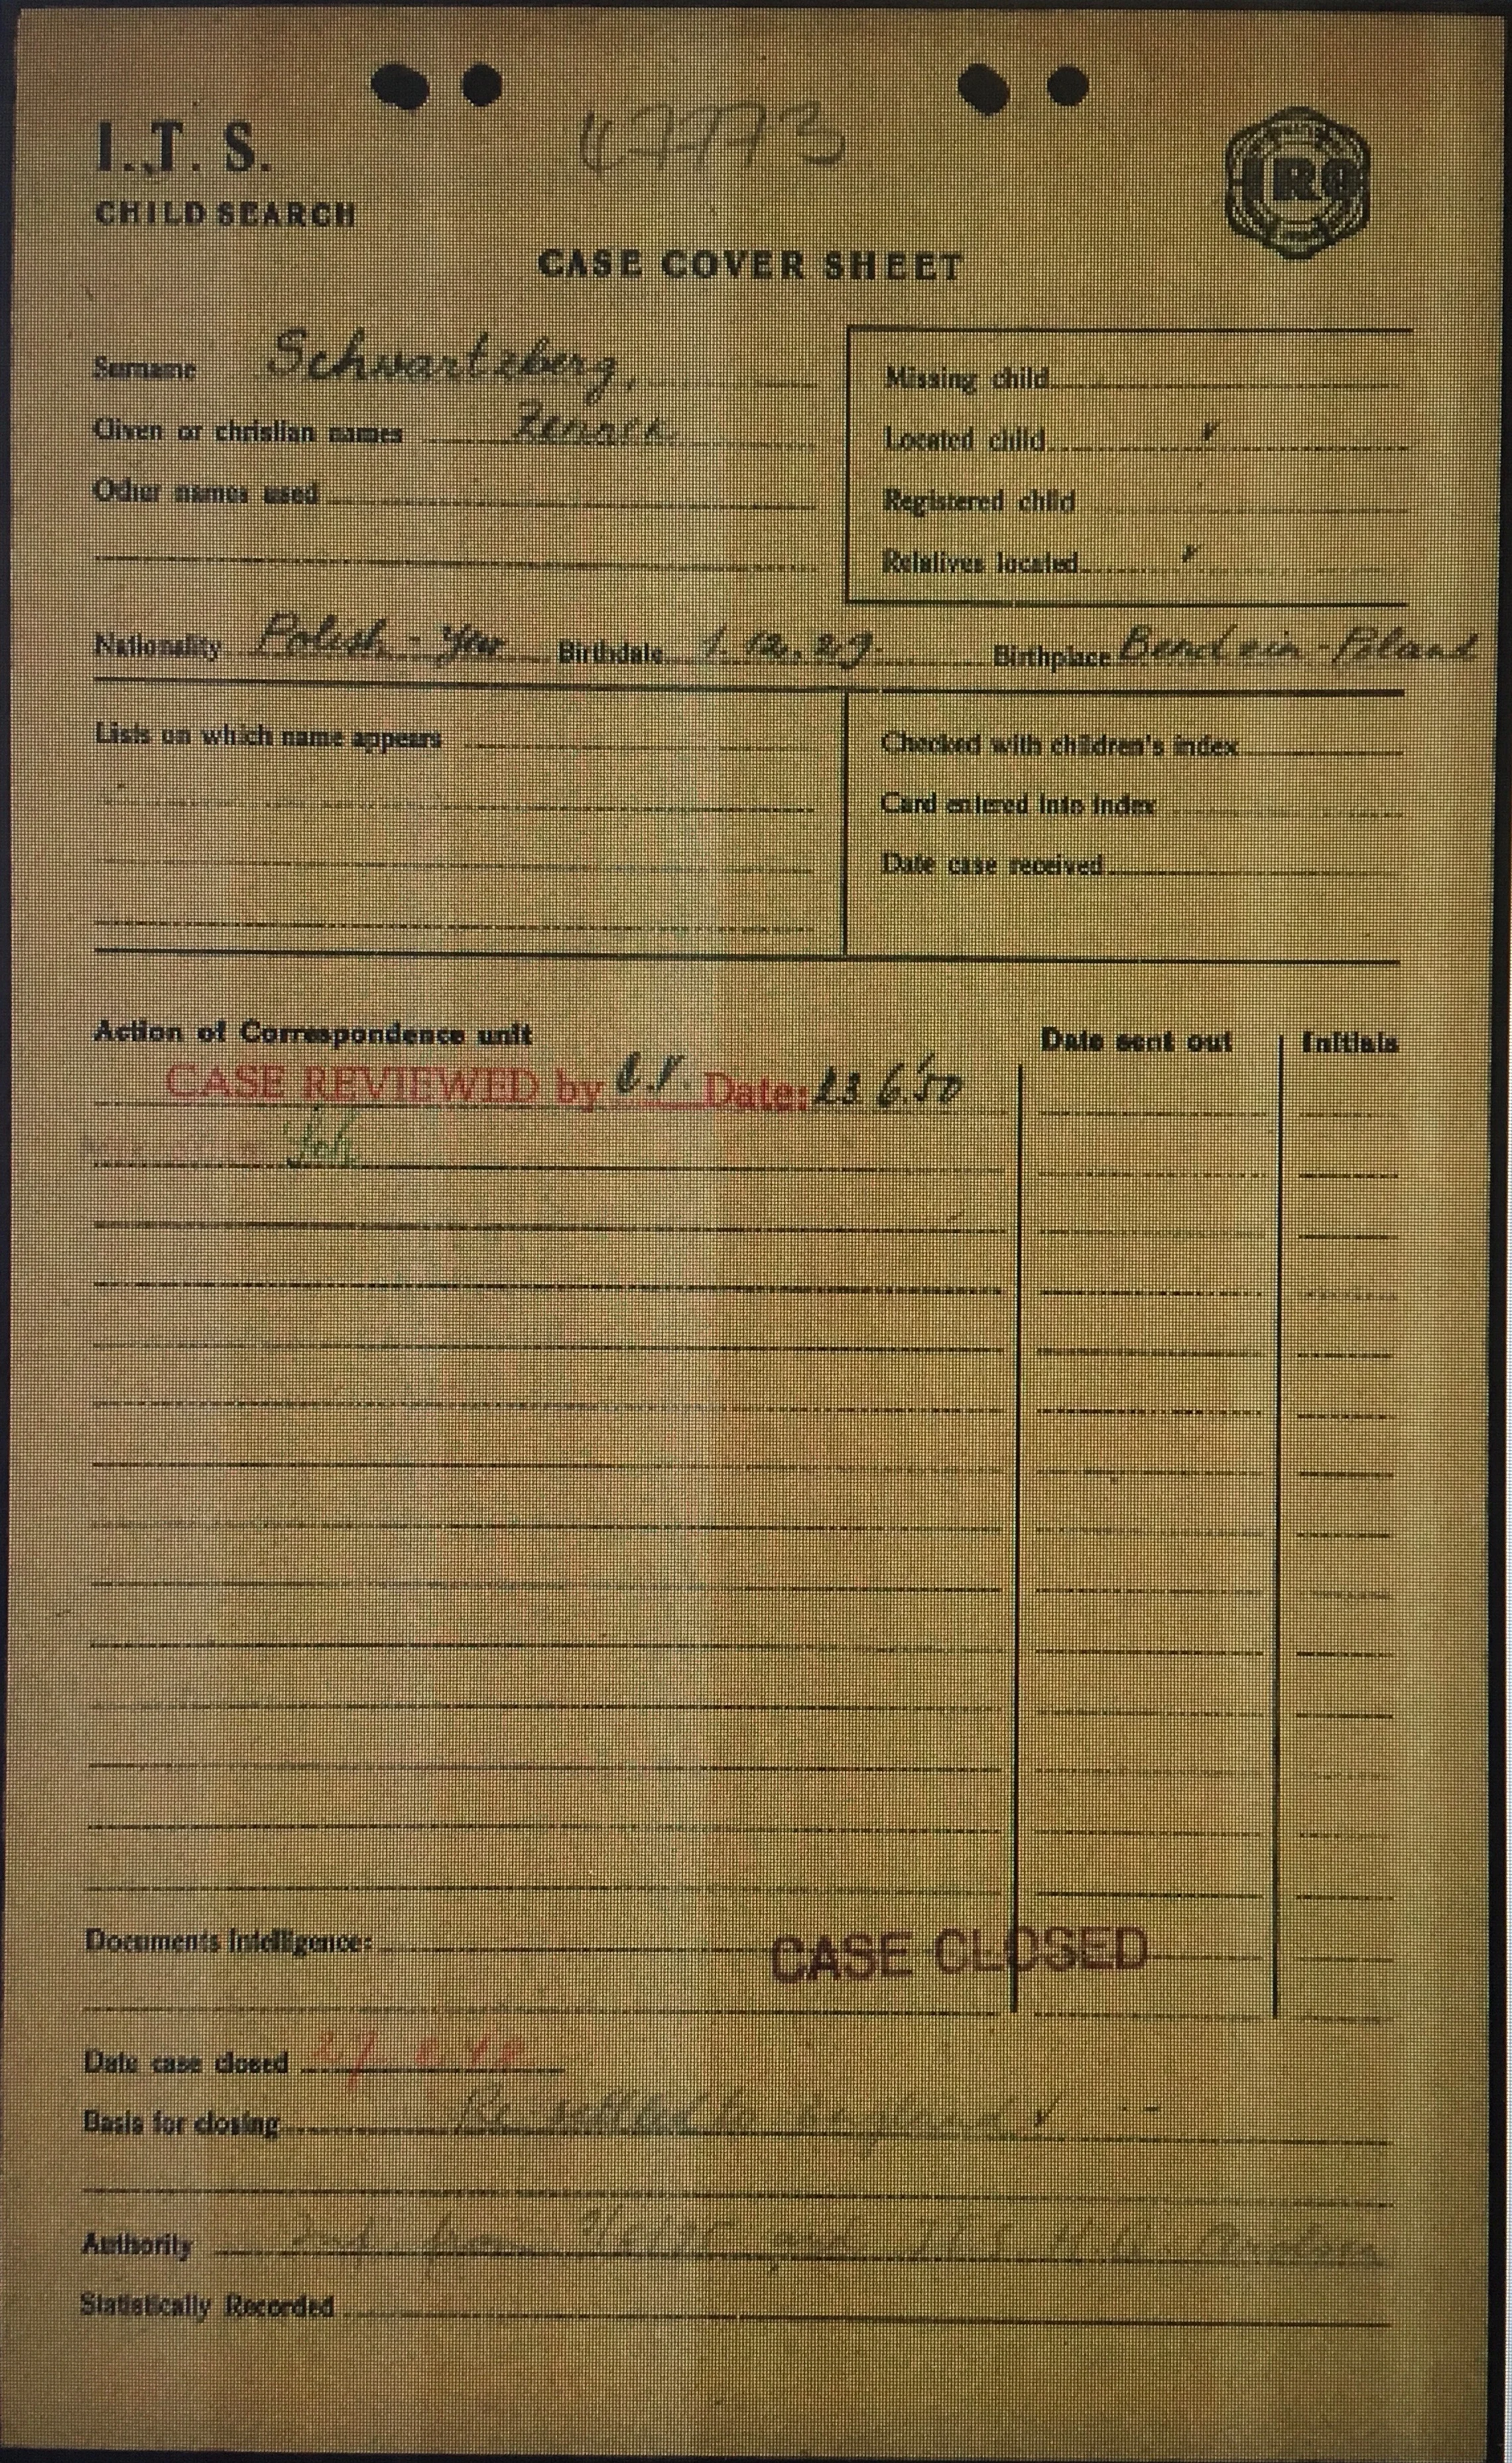 47773
I.T.S.
CHILD SEARCH
IRO
CASE COVER SHEET
Surname Schwartzberg,
Given or christian names
Other names used
Missing child
Located child ✓
Registered child
Relatives located ✓
Nationality Polish - Jew Birthdate 1.12.29. Birthplace Bendzin - Poland
Lists on which name appears
Checked with children's index
Card entered into index
Date case received
Action of Correspondence unit Date sent out Initials
CASE REVIEWED by Date: 23 6.50
Documents Intelligence:
CASE CLOSED
Date case closed
Basis for closing Re settled to England ✓
Authority from and ITS H.Q. Arolsen
Statistically Recorded